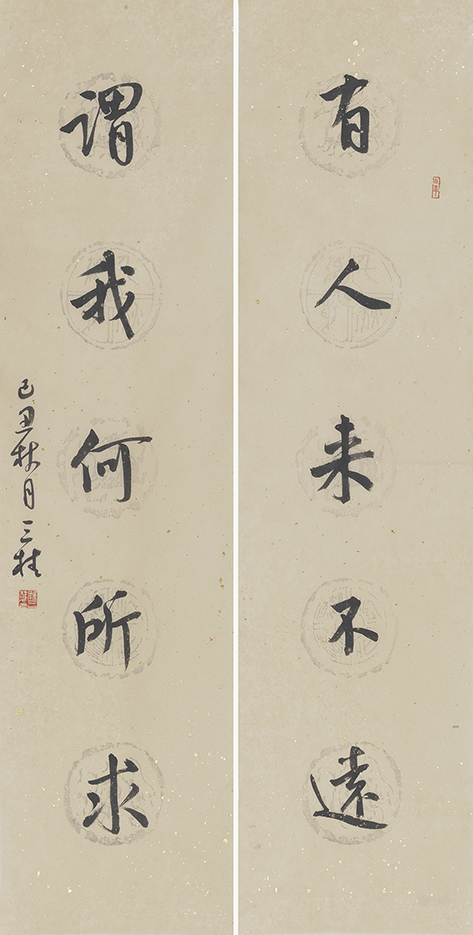 有人来不遠
謂我何所求
己丑秋月三桂